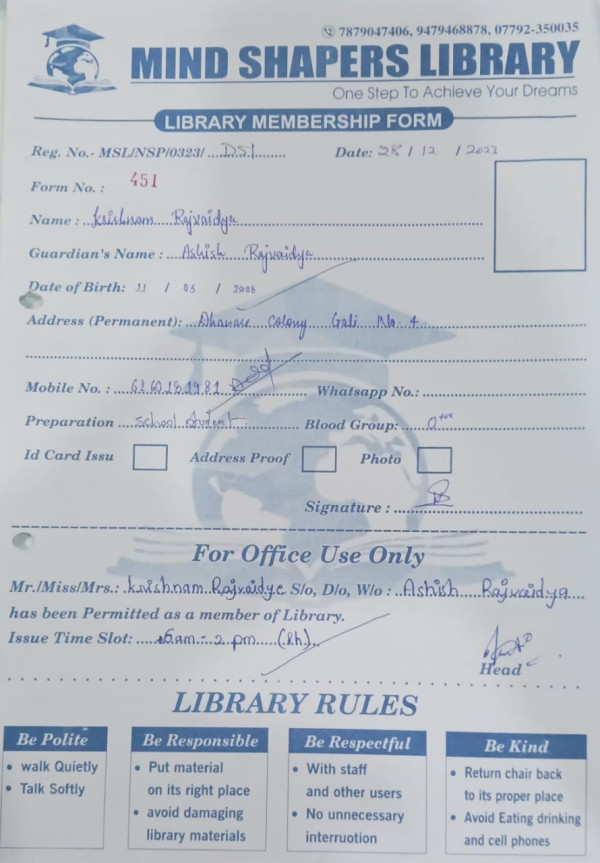 7879047406, 9479468878, 07792-350035
MIND SHAPERS LIBRARY
One Step To Achieve Your Dreams
LIBRARY MEMBERSHIP FORM
Reg. No.- MSL/NSP/0323/....DS1........ Date: 28 / 12 / 2023
Form No. : 451
Name : Krishnam Rajvaidya
Guardian's Name : Ashish Rajvaidya
Date of Birth: 11 / 03 / 2008
Address (Permanent): Dhanare Colony Gali No-4
Mobile No. : 6260181981 Whatsapp No.:
Preparation School student Blood Group: O+ve
Id Card Issu Address Proof Photo
Signature :
For Office Use Only
Mr./Miss/Mrs.: Krishnam Rajvaidya S/o, D/o, W/o : Ashish Rajvaidya
has been Permitted as a member of Library.
Issue Time Slot: 6am - 2 pm (8h)
Head
LIBRARY RULES
Be Polite
• walk Quietly
• Talk Softly
Be Responsible
• Put material
on its right place
• avoid damaging
library materials
Be Respectful
• With staff
and other users
• No unnecessary
interruotion
Be Kind
• Return chair back
to its proper place
• Avoid Eating drinking
and cell phones